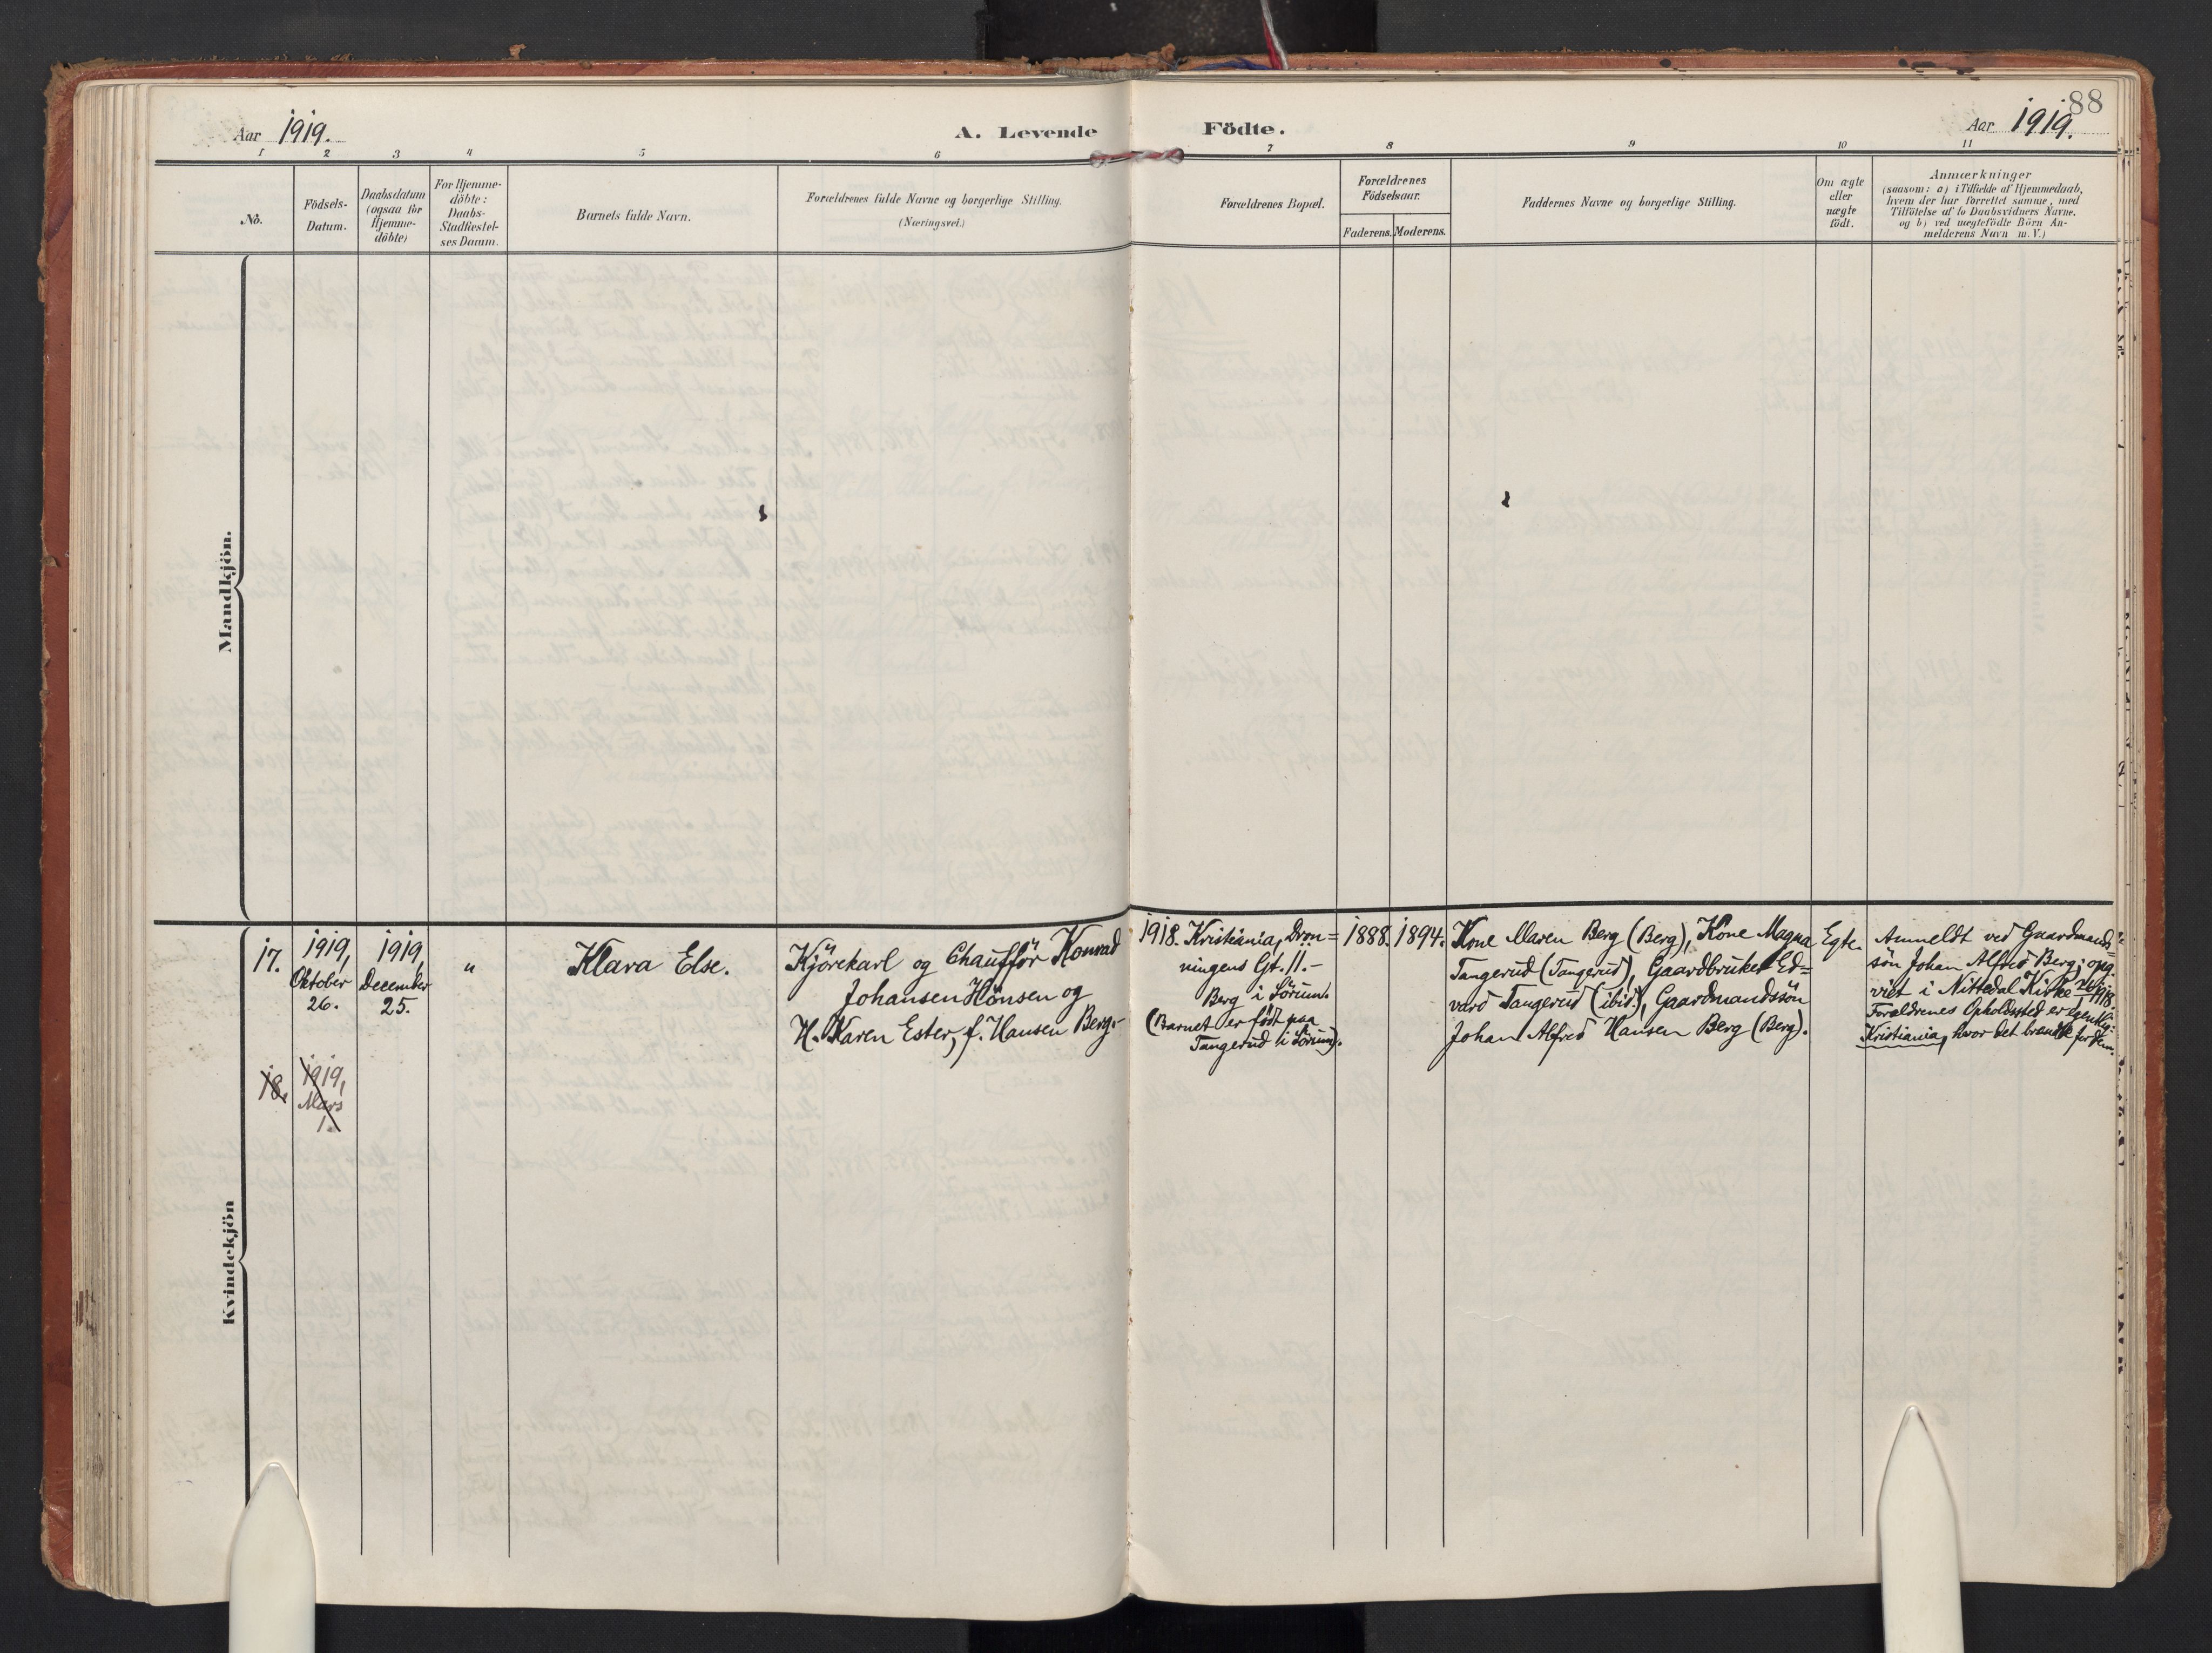 88
Aar 1919.
A. Levende Födte.
Aar 1919.
1 2 3 4 5 6 7 8 9 10 11
No.
Födsels-
Datum.
Daabsdatum
(ogsaa for
Hjemme-
döbte)
For Hjemme-
döbte:
Daabs-
Stadfæstel-
ses Datum.
Barnets fulde Navn.
Forældrenes fulde Navne og borgerlige Stilling.
(Næringsvei.)
Forældrenes Bopæl.
Forældrenes
Födselsaar.
Faderens. Moderens.
Faddernes Navne og borgerlige Stilling.
Om ægte
eller
uægte
födt.
Anmærkninger
(saasom: a) i Tilfælde af Hjemmedaab,
hvem der har forrettet samme, med
Tilföielse af to Daabsvidners Navne.
og b) ved uægtefödte Börn An-
melderens Navn m. V.)
Mandkjön.
Kvindekjön
17.
1919,
Oktober
26.
1919,
December
25.
"
Klara Else.
Kjörekarl og Chaufför Konrad
Johansen Hönsen og
H. Karen Ester, f. Hansen Berg.-
1918. Kristiania, Dron=
ningens Gt. 11.-
Berg i Sörum.
(Barnet er födt paa
Tangerud i Sörum).
1888.
1894.
Kone Maren Berg (Berg), Kone Magna
Tangerud (Tangerud), Gaardbruker Ed=
vard Tangerud (ibid.), Gaardmandssön
Johan Alfred Hansen Berg (Berg).
Egte.
Anmeldt ved Gaardmands=
sön Johan Alfred Berg; opg.
viet i Nittedal Kirke 1918.
Forældrenes Opholdssted er egentlig:
Kristiania, hvor det brændte for dem.
18.
1919,
Mars
1.